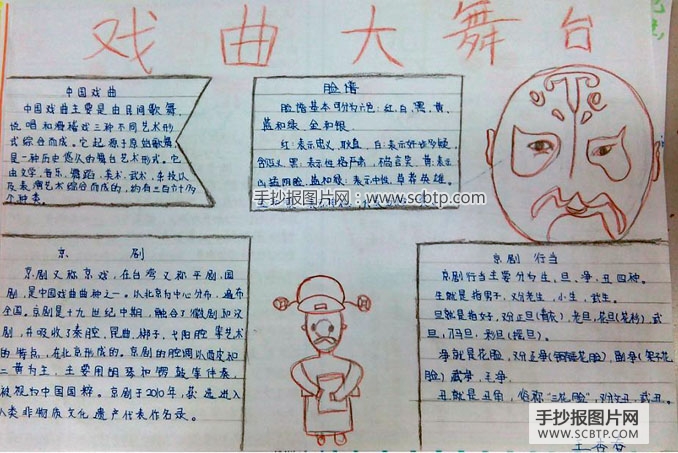 戏曲大舞台
中国戏曲
中国戏曲主要是由民间歌舞、
说唱和滑稽戏三种不同艺术形
式综合而成。它起源于原始歌舞,
是一种历史悠久的舞台艺术形式。它
由文学、音乐、舞蹈、美术、武术、杂技以
及表演艺术综合而成的,约有三百六十多
个种类。
脸谱
脸谱基本可分为六色:红、白、黑、黄、
蓝和绿、金和银
红:表示忠义、耿直 白:表示奸诈
黑:表示性格严肃,不苟言笑 黄:表示
凶猛阴险 蓝和绿:表示中性,草莽英雄。
手抄报图片网:www.scbtp.com
京 剧
京剧又称京戏,在台湾又称平剧、国
剧,是中国戏曲曲种之一。以北京为中心分布,遍布
全国。京剧是十九世纪中期,融合了徽剧和汉
剧,并吸收了秦腔、昆曲、梆子、弋阳腔等艺术
的特点,在北京形成的。京剧的腔调以西皮和
二黄为主,主要用胡琴和锣鼓等伴奏,
被视为中国国粹。京剧于2010年,获选进入
人类非物质文化遗产代表作名录。
京剧 行当
京剧行当主要分为生、旦、净、丑四种。
生就是指男子,对分老生、小生、武生。
旦就是指女子,对分正旦(青衣)、老旦、花旦(花衫)武
旦、刀马旦、彩旦(摇旦)。
净就是花脸,对分正净(铜锤花脸)、副净(架子花
脸)武净、毛净。
丑就是丑角,俗称“三花脸”,对分文丑、武丑。
手抄报图片网
WWW.SCBTP.COM